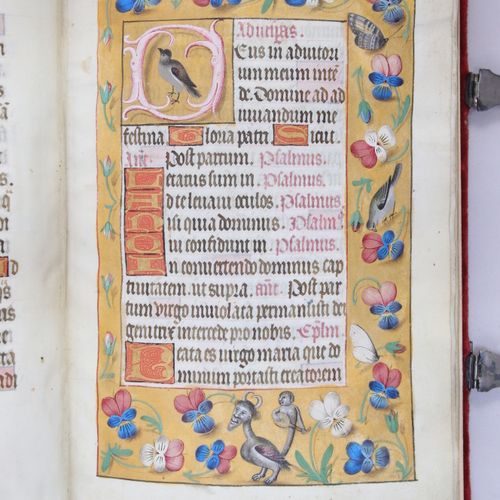 Ad uesp̃as.
Deus in adiutori
um meum inte
de. Domine ad ad
iuuandum me
festina Gloria patri Sicut.
Añt. Post partum. Psalmus.
Letatus sum in. Psalmus.
Ad te leuaui oculos. Psalmus.
Nisi quia dominus. Psalmꝰ
Qui confidunt in. Psalmus.
In conuertendo dominus cap
tiuitatem. ut supra. añt. Post par
tum uirgo inuiolata permansisti dei
genitrix intercede pro nobis.
Beata es uirgo maria que do
minum portasti creatorem